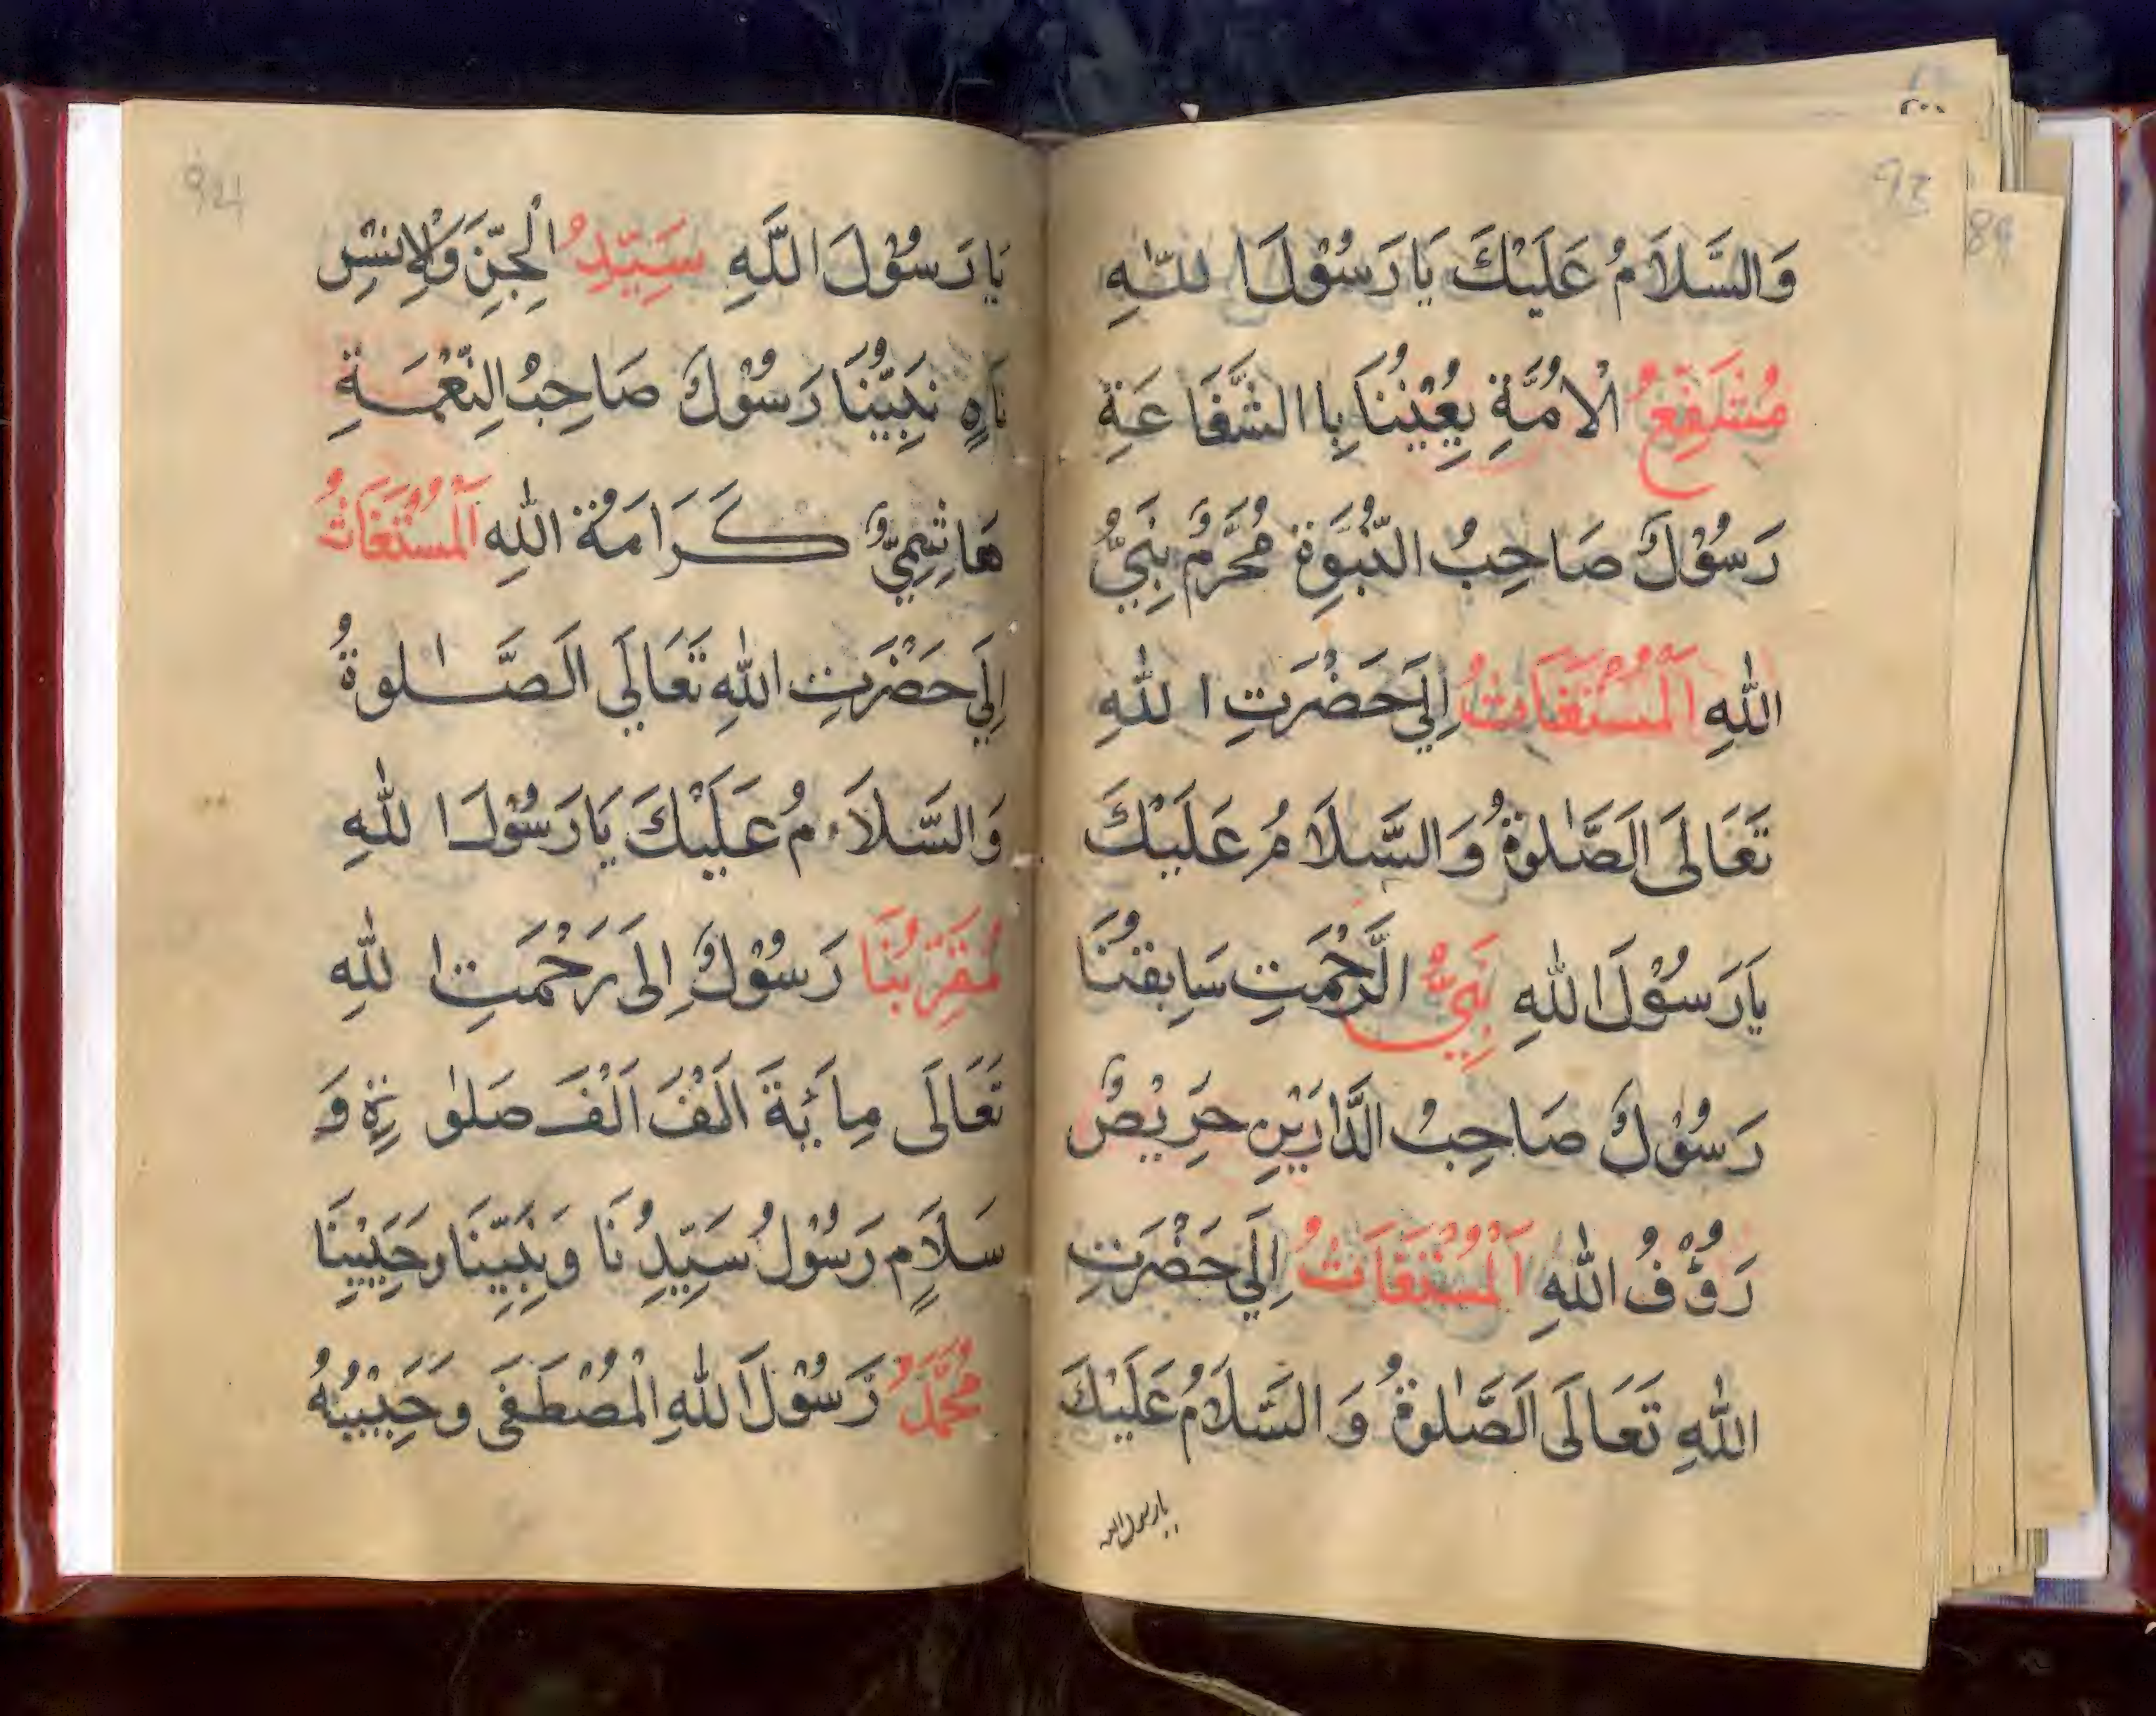 وَالسَّلَامُ عَلَيْكَ يَا رَسُوْلَ اللّٰهِ
مُشَفِّعُ الْاُمَّةِ يُعِيْنُنَا بِاالشَّفَاعَةِ
رَسُوْلٌ صَاحِبُ النُّبُوَّةِ مُحَرَّمٌ نَبِيُّ
اللّٰهِ اَلْمُسْتَغَاثُ اِلَى حَضْرَتِ اللّٰهِ
تَعَالَى اَلصَّلٰوةُ وَالسَّلَامُ عَلَيْكَ
يَا رَسُوْلَ اللّٰهِ نَبِيُّ الرَّحْمَتِ سَابِقُنَا
رَسُوْلٌ صَاحِبُ الدَّارَيْنِ حَرِيْصٌ
رَؤُوْفُ اللّٰهِ اَلْمُسْتَغَاثُ اِلَى حَضْرَتِ
اللّٰهِ تَعَالَى اَلصَّلٰوةُ وَالسَّلَامُ عَلَيْكَ
يارسول الله
يَا رَسُوْلَ اللّٰهِ سَيِّدُ الْجِنِّ وَالْاِنْسِ
نَبِيُّنَا رَسُوْلٌ صَاحِبُ النِّعْمَةِ
هَاشِمِيٌّ كَرَامَةُ اللّٰهِ اَلْمُسْتَغَاثُ
اِلَى حَضْرَتِ اللّٰهِ تَعَالَى اَلصَّلٰوةُ
وَالسَّلَامُ عَلَيْكَ يَا رَسُوْلَ اللّٰهِ
مُقَرِّبُنَا رَسُوْلٌ اِلَى رَحْمَتِ اللّٰهِ
تَعَالَى مِائَةَ اَلْفَ اَلْفَ صَلٰوةٍ وَ
سَلَامٍ رَسُوْلُ سَيِّدُنَا وَنَبِيِّنَا وَحَبِيْبِنَا
مُحَمَّدٌ رَسُوْلَ اللّٰهِ الْمُصْطَفَى وَحَبِيْبُهُ
94
93
89